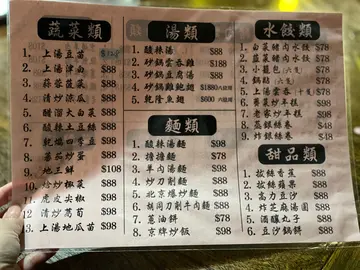 蔬菜類
1. 上湯豆苗 $128
2. 上湯津白 $88
3. 蒜蓉菠菜 $88
4. 清炒傍瓜 $88
5. 醋溜大白菜 $88
6. 酸辣土豆絲 $88
7. 乾煸四季豆 $88
8. 蕃茄炒蛋 $88
9. 地三鮮 $108
10. 燴炒椒菜 $88
11. 虎皮尖椒 $88
12. 清炒萵筍 $88
13. 上湯地瓜苗 $98
湯類
1. 酸辣湯 $88
2. 砂鍋雲吞雞 $88
3. 砂鍋豆腐湯 $88
4. 砂鍋雞鮑翅 $1880 六位用
5. 乾隆魚翅 $600 六位用
麵類
1. 酸辣湯麵 $98
2. 擔擔麵 $78
3. 羊肉湯麵 $98
4. 炒刀削麵 $88
5. 北京爆炒麵 $88
6. 胡同刀削牛肉麵 $88
7. 蔥油餅 $78
8. 京牌炒飯 $98
水餃類
1. 白菜豬肉水餃 $78
2. 韮菜豬肉水餃 $78
3. 小籠包 (六隻)
4. 鍋貼 (六隻)
5. 上湯雲吞 (十隻)
6. 賽梨炒年糕 $98
7. 老家炒年糕 $98
8. 蒸銀絲卷
9. 炸銀絲卷 $48
甜品類
1. 拔絲香蕉 $88
2. 拔絲蘋果 $88
3. 高力豆沙 $88
4. 炸芝麻湯圓 $88
5. 酒釀丸子 $88
6. 豆沙鍋餅 $88